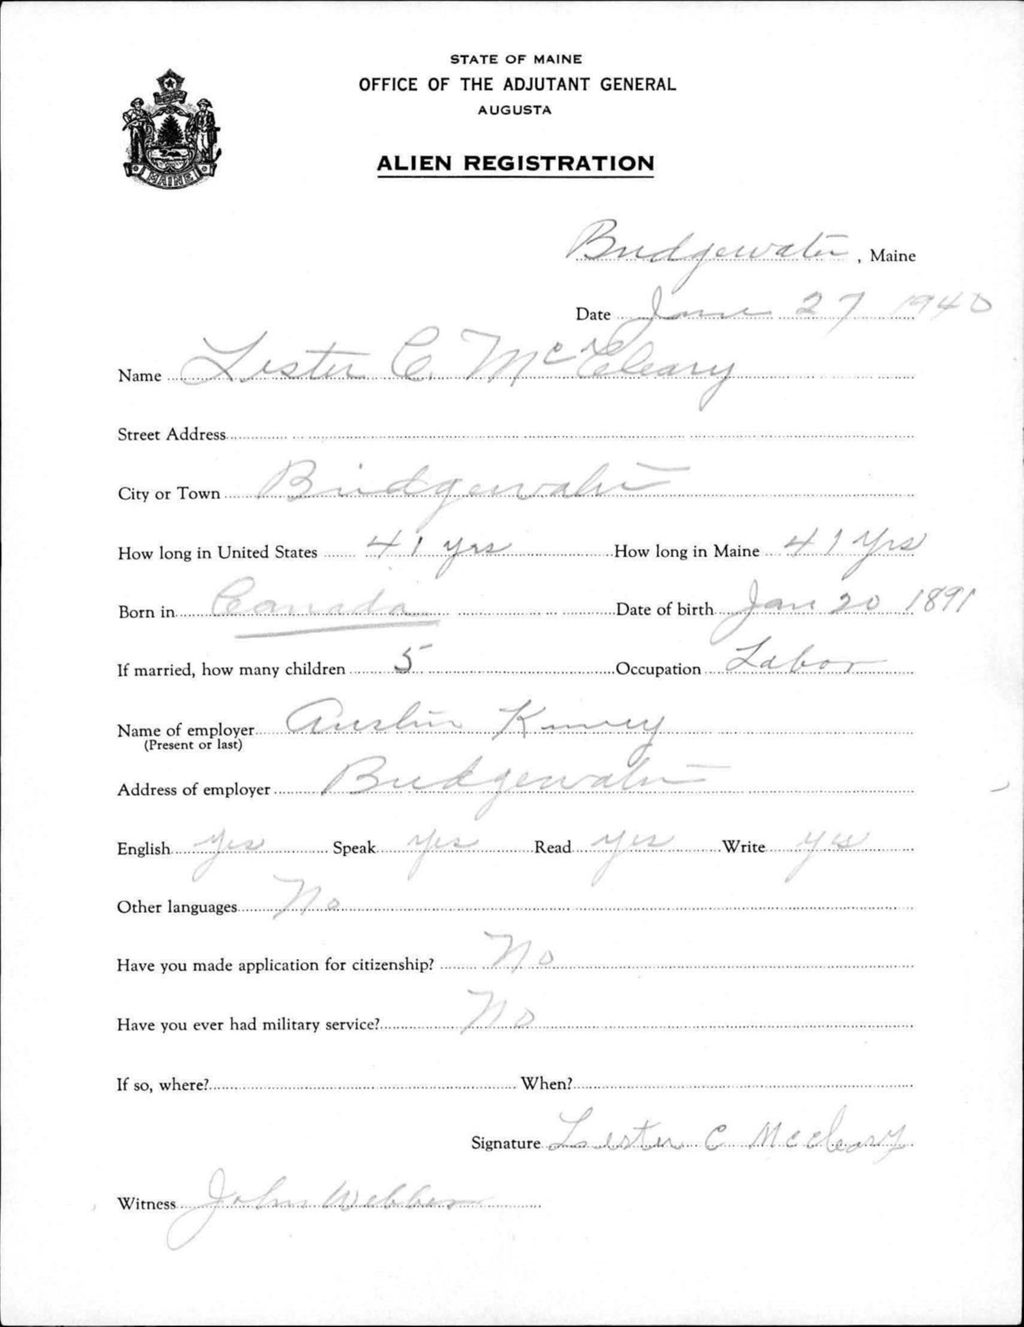 STATE OF MAINE
OFFICE OF THE ADJUTANT GENERAL
AUGUSTA
ALIEN REGISTRATION
MAINE
Bridgewater, Maine
Date June 27 1940
Name Lester C. McCleary
Street Address
City or Town Bridgewater
How long in United States 41 yrs How long in Maine 41 Yrs
Born in Canada Date of birth Jan 20 1891
If married, how many children 5 Occupation Labor
Name of employer Austin
(Present or last)
Address of employer Bridgewater
English yes Speak yes Read yes Write yes
Other languages No
Have you made application for citizenship? No
Have you ever had military service? No
If so, where? When?
Signature Lester C McCleary
Witness John Webber